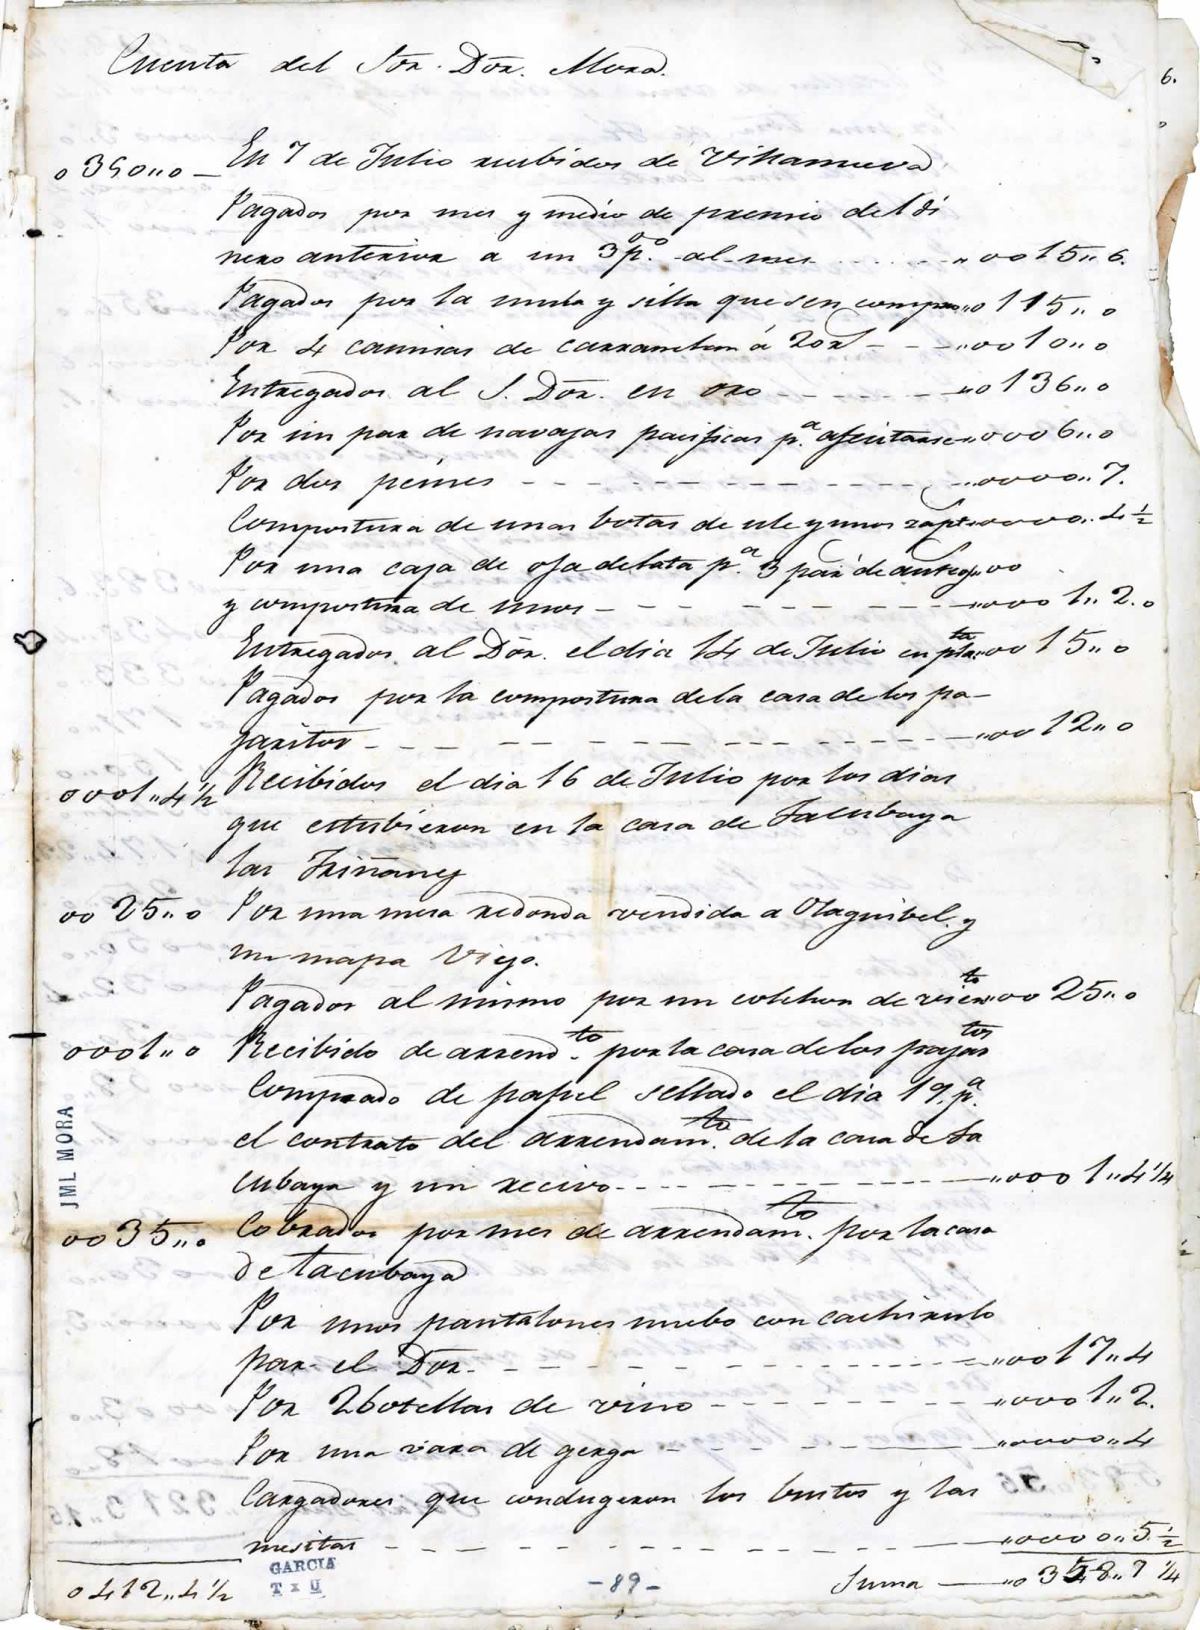 Cuenta del Sor. Dor. Mora.
6.
0350,,0 — En 7 de Julio recibidos de Villanueva
Pagados por mes y medio de premio del di
nero anterior a un 3 p.oo al mes ,,0015,,6.
Pagados por la mula y silla que sen compra ,,0115,,0
Por 4 camisas de carranclan á 20 r - - - ,,0010,,0
Entregados al S. Dor. en oro - - - - - ,,0136,,0
Por un par de navajas pacificas p.a afeitarse ,,0006,,0
Por dos peines - - - - - - - - ,,0000,,7.
Compostura de unas botas de ule y unos zapts ,,0000,,4½
Por una caja de oja de lata p.a 3 par de anteoj ,,00
y compostura de unos - - - - - - ,,0001,,2.0
Entregados al Dor. el dia 14 de Julio en plata ,,0015,,0
Pagados por la compostura dela casa de los pa-
jaritos - - - - - - - - ,,0012,,0
0001,,4½ Recibidos el dia 16 de Julio por los dias
que estubieron en la casa de Tacubaya
las
0025,,0 Por una mesa redonda vendida a Olaguibel y
un mapa Viejo.
Pagados al mismo por un colchon de viento ,,0025,,0
0001,,0 Recibido de arrend.to por la casa de los pajartos
Comprado de papel sellado el dia 19. p.a
el contrato del arrendam.to de la casa de Ta
cubaya y un recivo - - - - ,,0001,,4¼
0035,,0 Cobrados por mes de arrendam.to por la casa
de Tacubaya
Por unos pantalones nuebo con cachirulo
par el Dor. - - - - - - - - ,,0017,,4
Por 2 botellas de vino - - - - - ,,0001,,2.
Por una vara de gerga - - - - - ,,0000,,4
Cargadores que condugeron los bustos y las
mesitas - - - - - - - - ,,0000,,5½
0412,,4½ Suma — ,,0358,,7¼
JML MORA
GARCIA
T x U
-89-